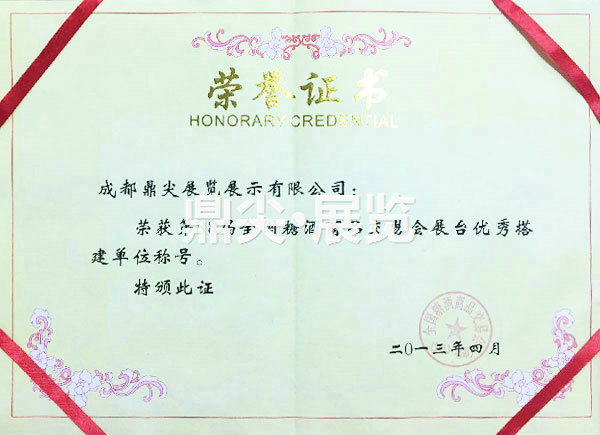 荣誉证书
HONORARY CREDENTIAL
成都鼎尖展览展示有限公司：
荣获第 届全国糖酒商品交易会展台优秀搭
建单位称号。
特颁此证
鼎尖·展览
全国糖酒商品交易
二〇一三年四月